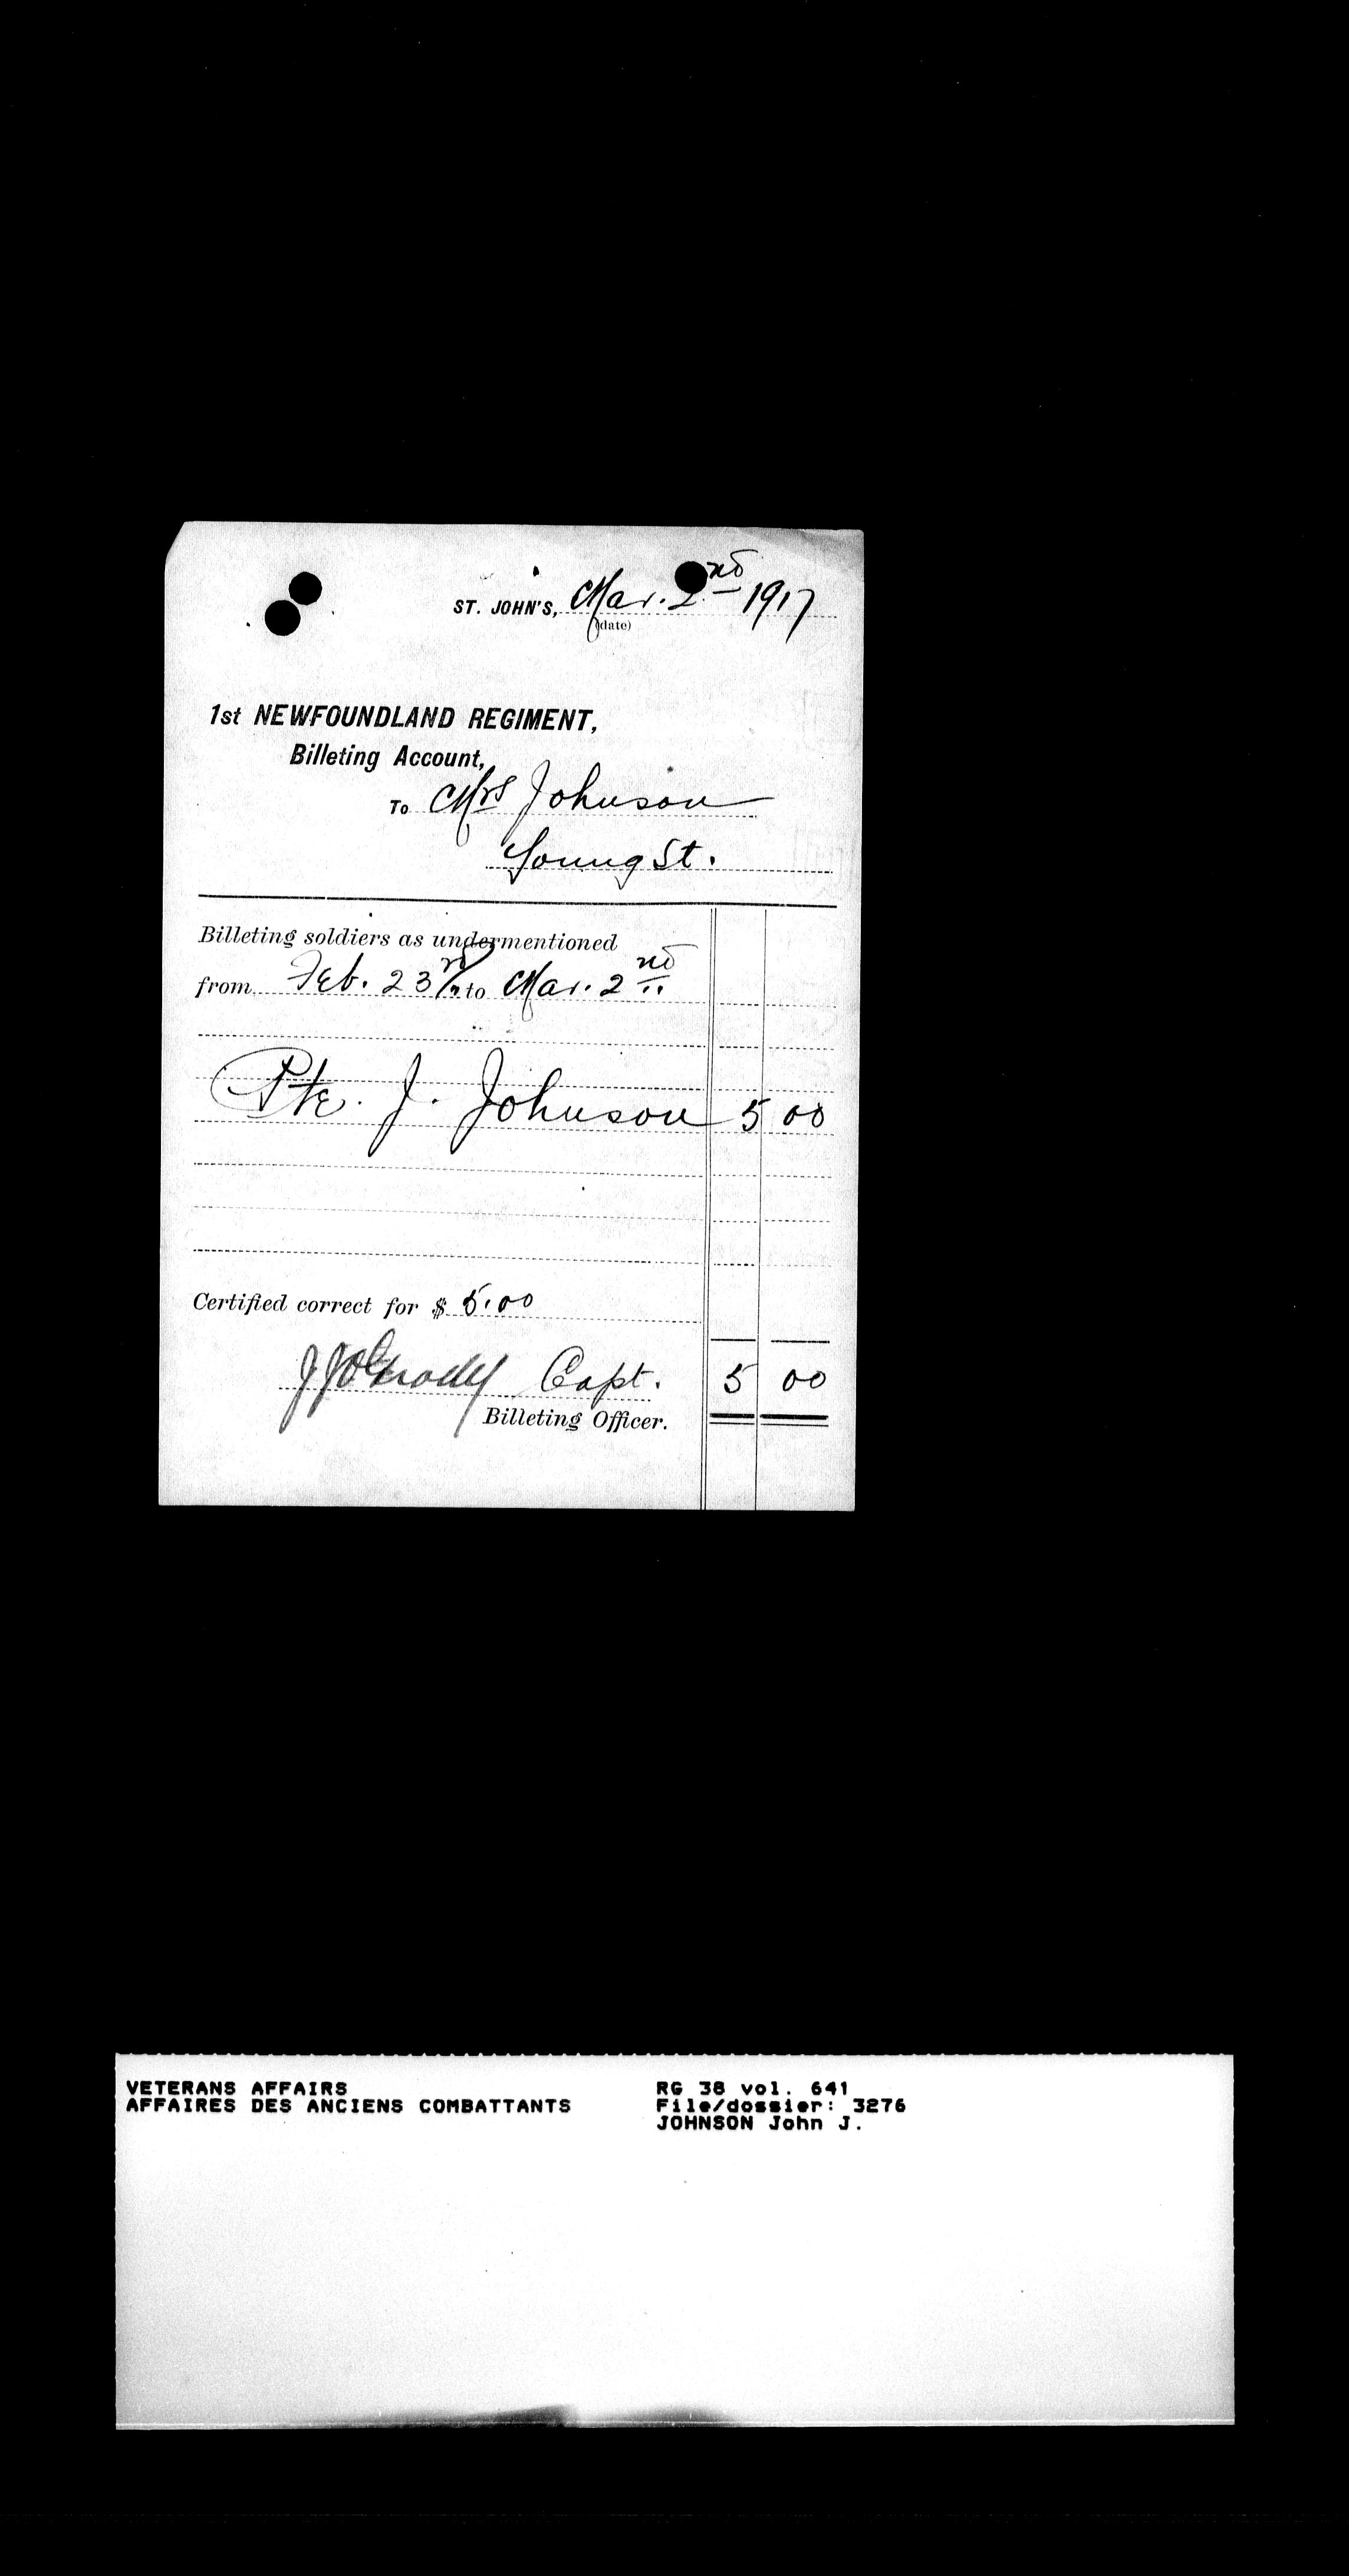 ST. JOHN'S, Mar. 2nd 1917
(date)
1st NEWFOUNDLAND REGIMENT,
Billeting Account,
To Mrs Johnson
Young St.
Billeting soldiers as undermentioned
from Feb. 23rd to Mar. 2nd
Pte. J. Johnson 5 00
Certified correct for $ 5.00
J J O'Grady Capt. 5 00
Billeting Officer.
VETERANS AFFAIRS
AFFAIRES DES ANCIENS COMBATTANTS
RG 38 vol. 641
File/dossier: 3276
JOHNSON John J.